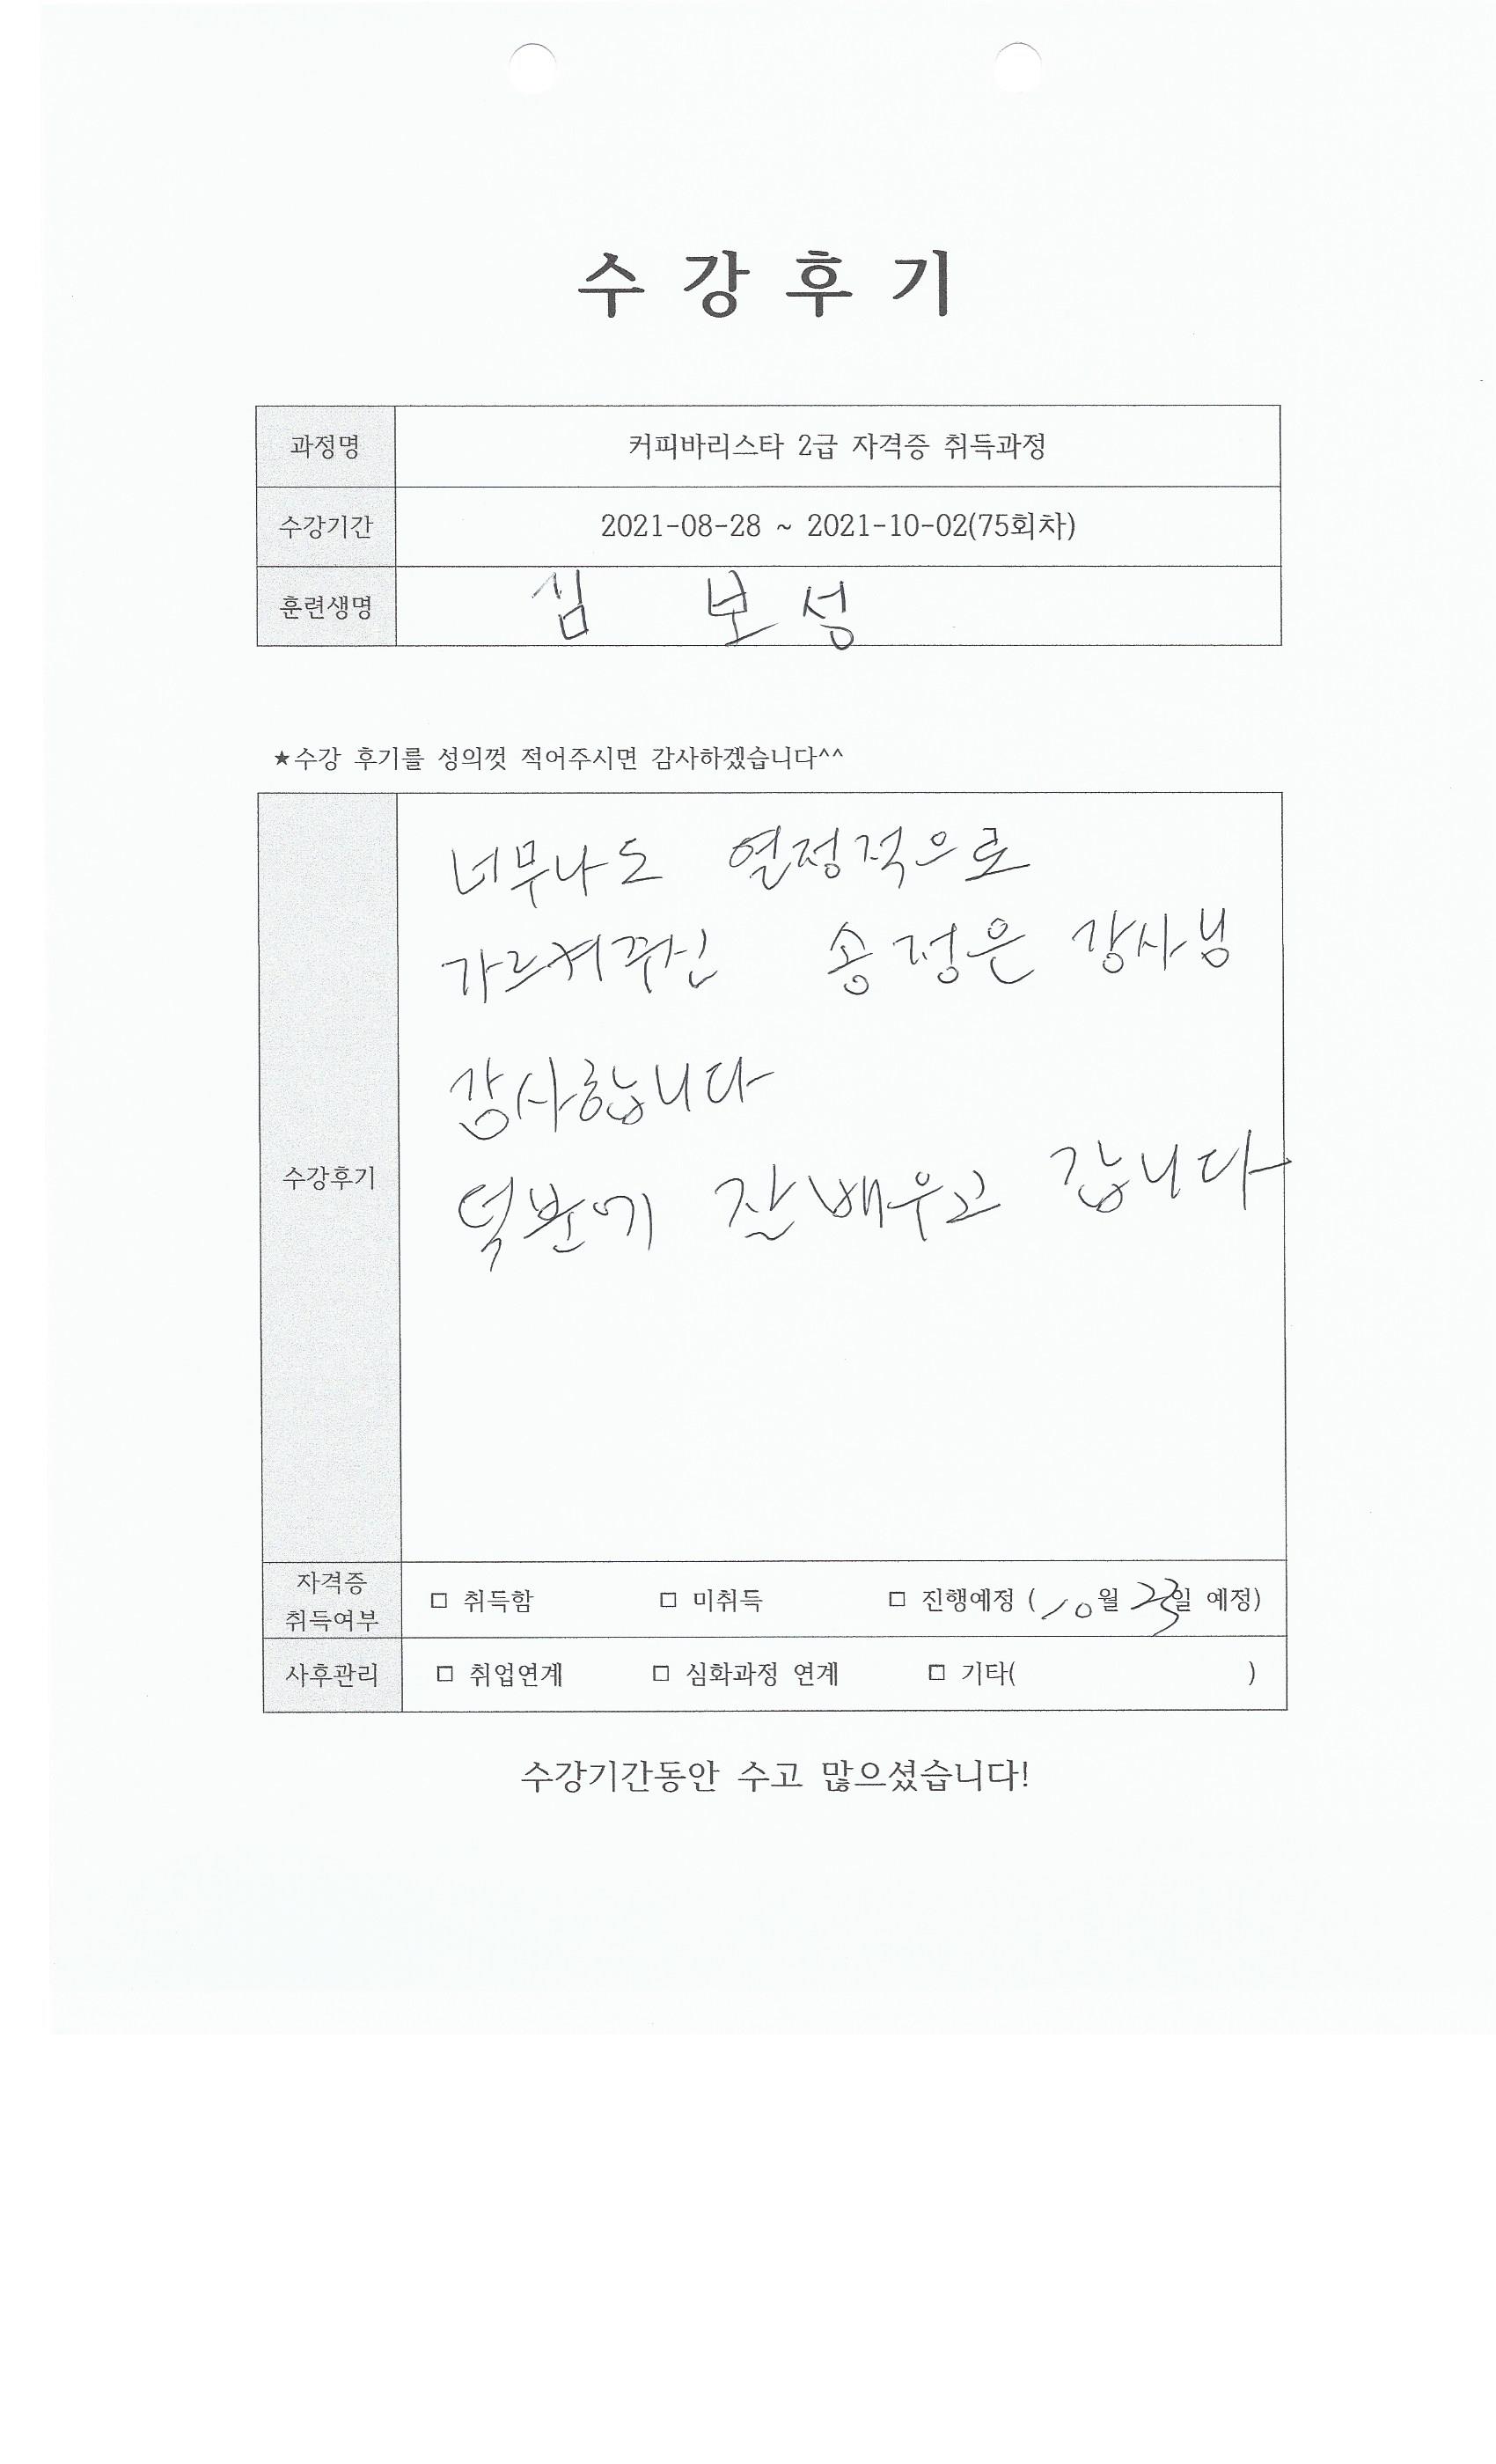 수 강 후 기
과정명 커피바리스타 2급 자격증 취득과정
수강기간 2021-08-28 ~ 2021-10-02(75회차)
훈련생명 심 보성
★수강 후기를 성의껏 적어주시면 감사하겠습니다^^
수강후기
너무나도 열정적으로
가르켜주신 송정은 강사님
감사합니다
덕분에 잘 배우고 갑니다
자격증
취득여부
□ 취득함 □ 미취득 □ 진행예정 (10월 23일 예정)
사후관리 □ 취업연계 □ 심화과정 연계 □ 기타( )
수강기간동안 수고 많으셨습니다!